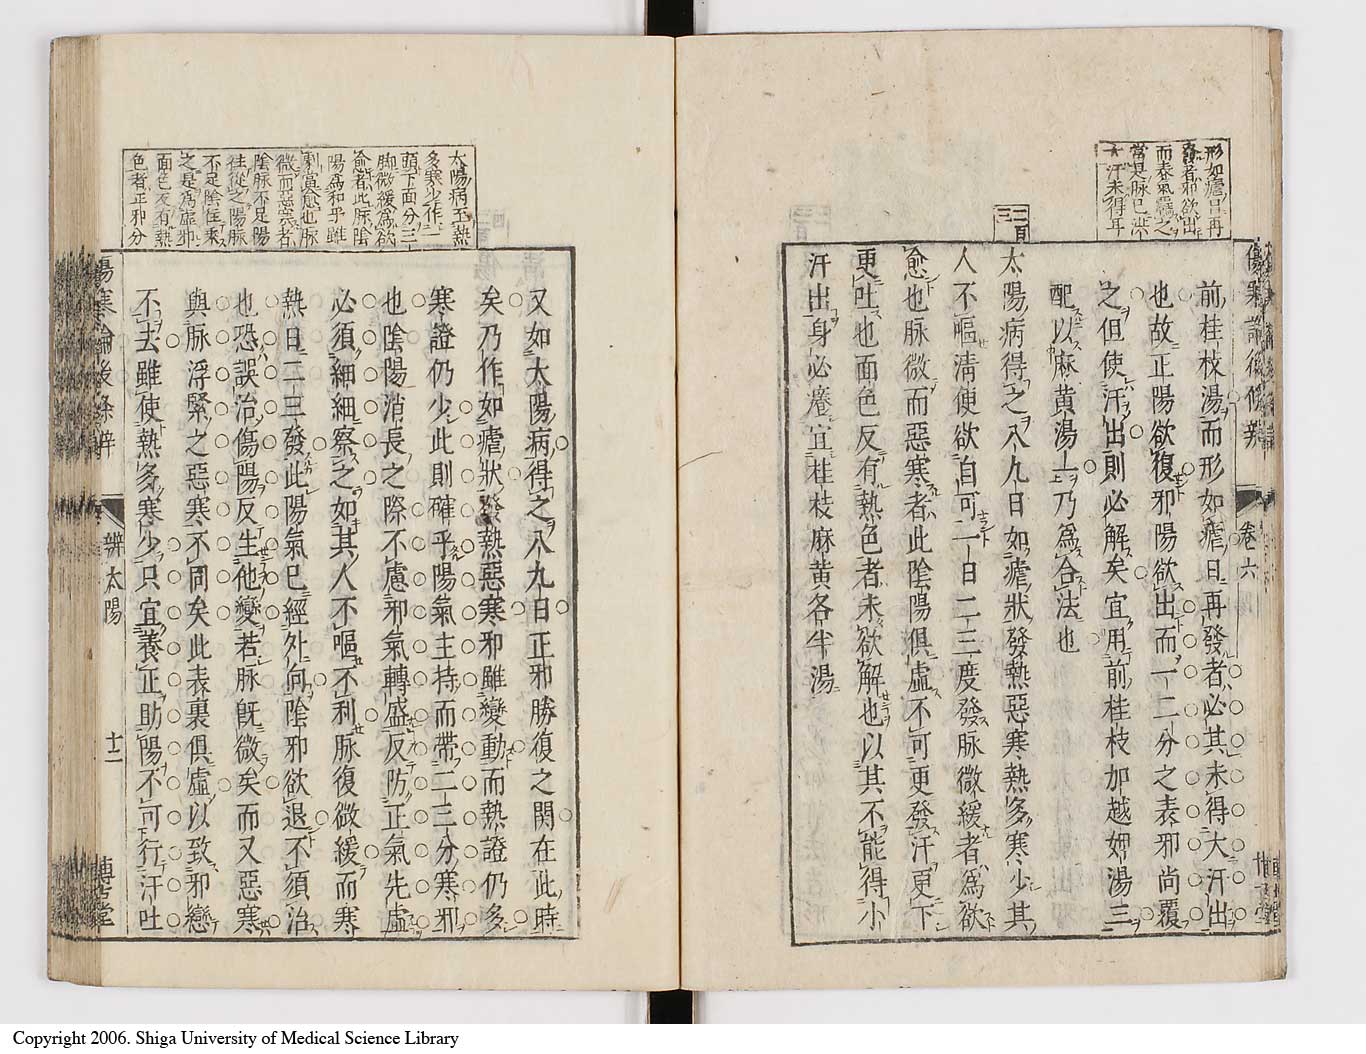 形如瘧日再
發者邪欲出
而表氣羈之
當是脉已洪
大汗未得耳
卷六
前桂枝湯而形如瘧日再發者必其未得大汗出
也故正陽欲復邪陽欲出而一二分之表邪尚覆
之但使汗出則必解矣宜用前桂枝加越婢湯三
配以麻黄湯一乃爲合法也
二百三
太陽病得之八九日如瘧狀發熱惡寒熱多寒少其
人不嘔淸便欲自可一日二三度發脉微緩者爲欲
愈也脉微而惡寒者此陰陽俱虛不可更發汗更下
更吐也面色反有熱色者未欲解也以其不能得小
汗出身必癢宜桂枝麻黄各半湯
太陽病至熱
多寒少作一
頭下面分三
脚微緩爲欲
愈者此脉陰
陽爲和乎雖
劇當愈也脉
微而惡寒者
陰脉不足陽
往從之陽脉
不足陰往乘
之是爲虛邪
面色反有熱
色者正邪分
又如太陽病得之八九日正邪勝復之關在此時
矣乃作如瘧狀發熱惡寒邪雖變動而熱證仍多
寒證仍少此則確乎陽氣主持而帶二三分寒邪
也陰陽消長之際不慮邪氣轉盛反防正氣先虛
必須細細察之如其人不嘔不利脉復微緩而寒
熱日二三發此陽氣已經外向陰邪欲退不須治
也恐誤治傷陽反生他變若脉旣微矣而又惡寒
與脉浮緊之惡寒不同矣此表裏俱虛以致邪戀
不去雖使熱多寒少只宜養正助陽不可行汗吐
傷寒論後條辨
辨太陽
十二
博古堂
Copyright 2006. Shiga University of Medical Science Library